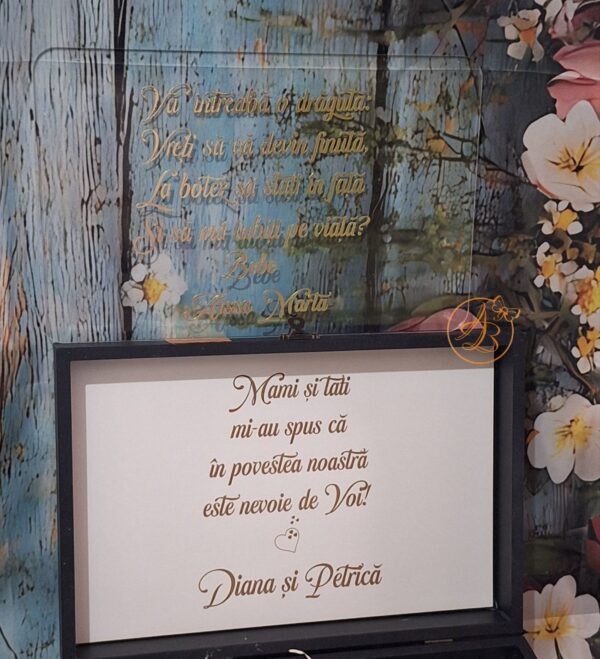 Vă întreabă o drăguță:
Vreți să vă devin finuță,
La botez să stați în față
Și să mă iubiți pe viață?
Bebe
Maria
Mami și tati
mi-au spus că
în povestea noastră
este nevoie de Voi!
Diana și Petrică
AB